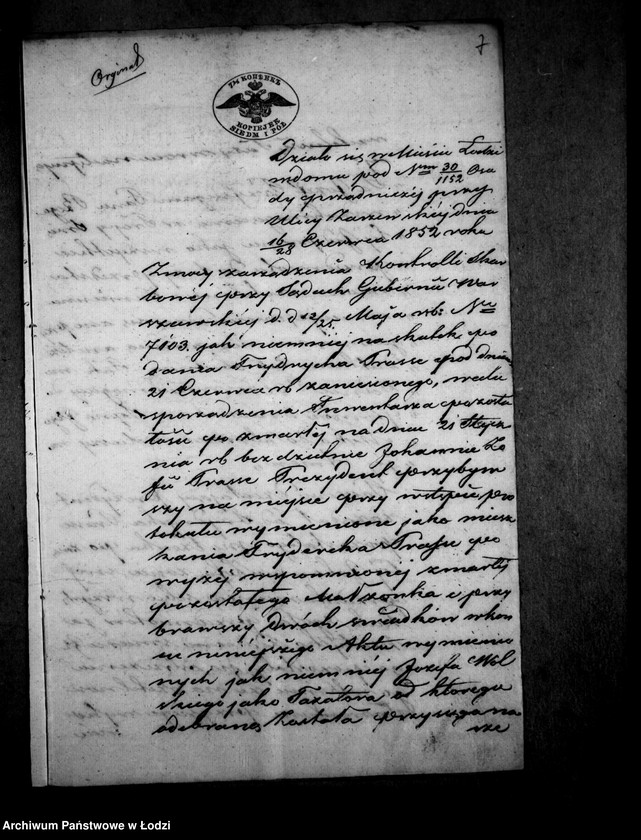 7
Orginał
7½ КОПѢЕКЪ
KOPIEJEK
SIEDM I PÓŁ
Działo się w Mieście Łodzi
w domu pod Nrm 30/1152 Osa
dy przędniczej przy
Ulicy Zarzewskiej dnia
16/28 Czerwca 1852 roku
Z mocy zarządzenia Kontrolli Skar
bowéj przy Sądach Gubernii War
szawskiéj d. d 13/25 Maja rb. Nr
7103. jak niemniej na skutek po
dania Frydrycha Trasse pod dniem
21 Czerwca rb zaniesionego, w celu
sporządzenia Inwentarza pozosta
łości po zmarłéj na dniu 21 Stycz
nia rb bezdzietnie Johannie Zo
fii Trasse Prezydent przybyw
szy na miejsce przy wstępie pro
tokułu wymienione jako miesz
kania Fryderyka Trasse po
wyżéj wspomnionéj zmarłéj
pozostałego Małżonka i przy
brawszy dwóch świadków w koń
cu niniejszego Aktu wymienio
nych jak niemniéj Józefa Wol
skiego jako Taxatora od którego
odebraną została przysięga na
rze
Archiwum Państwowe w Łodzi